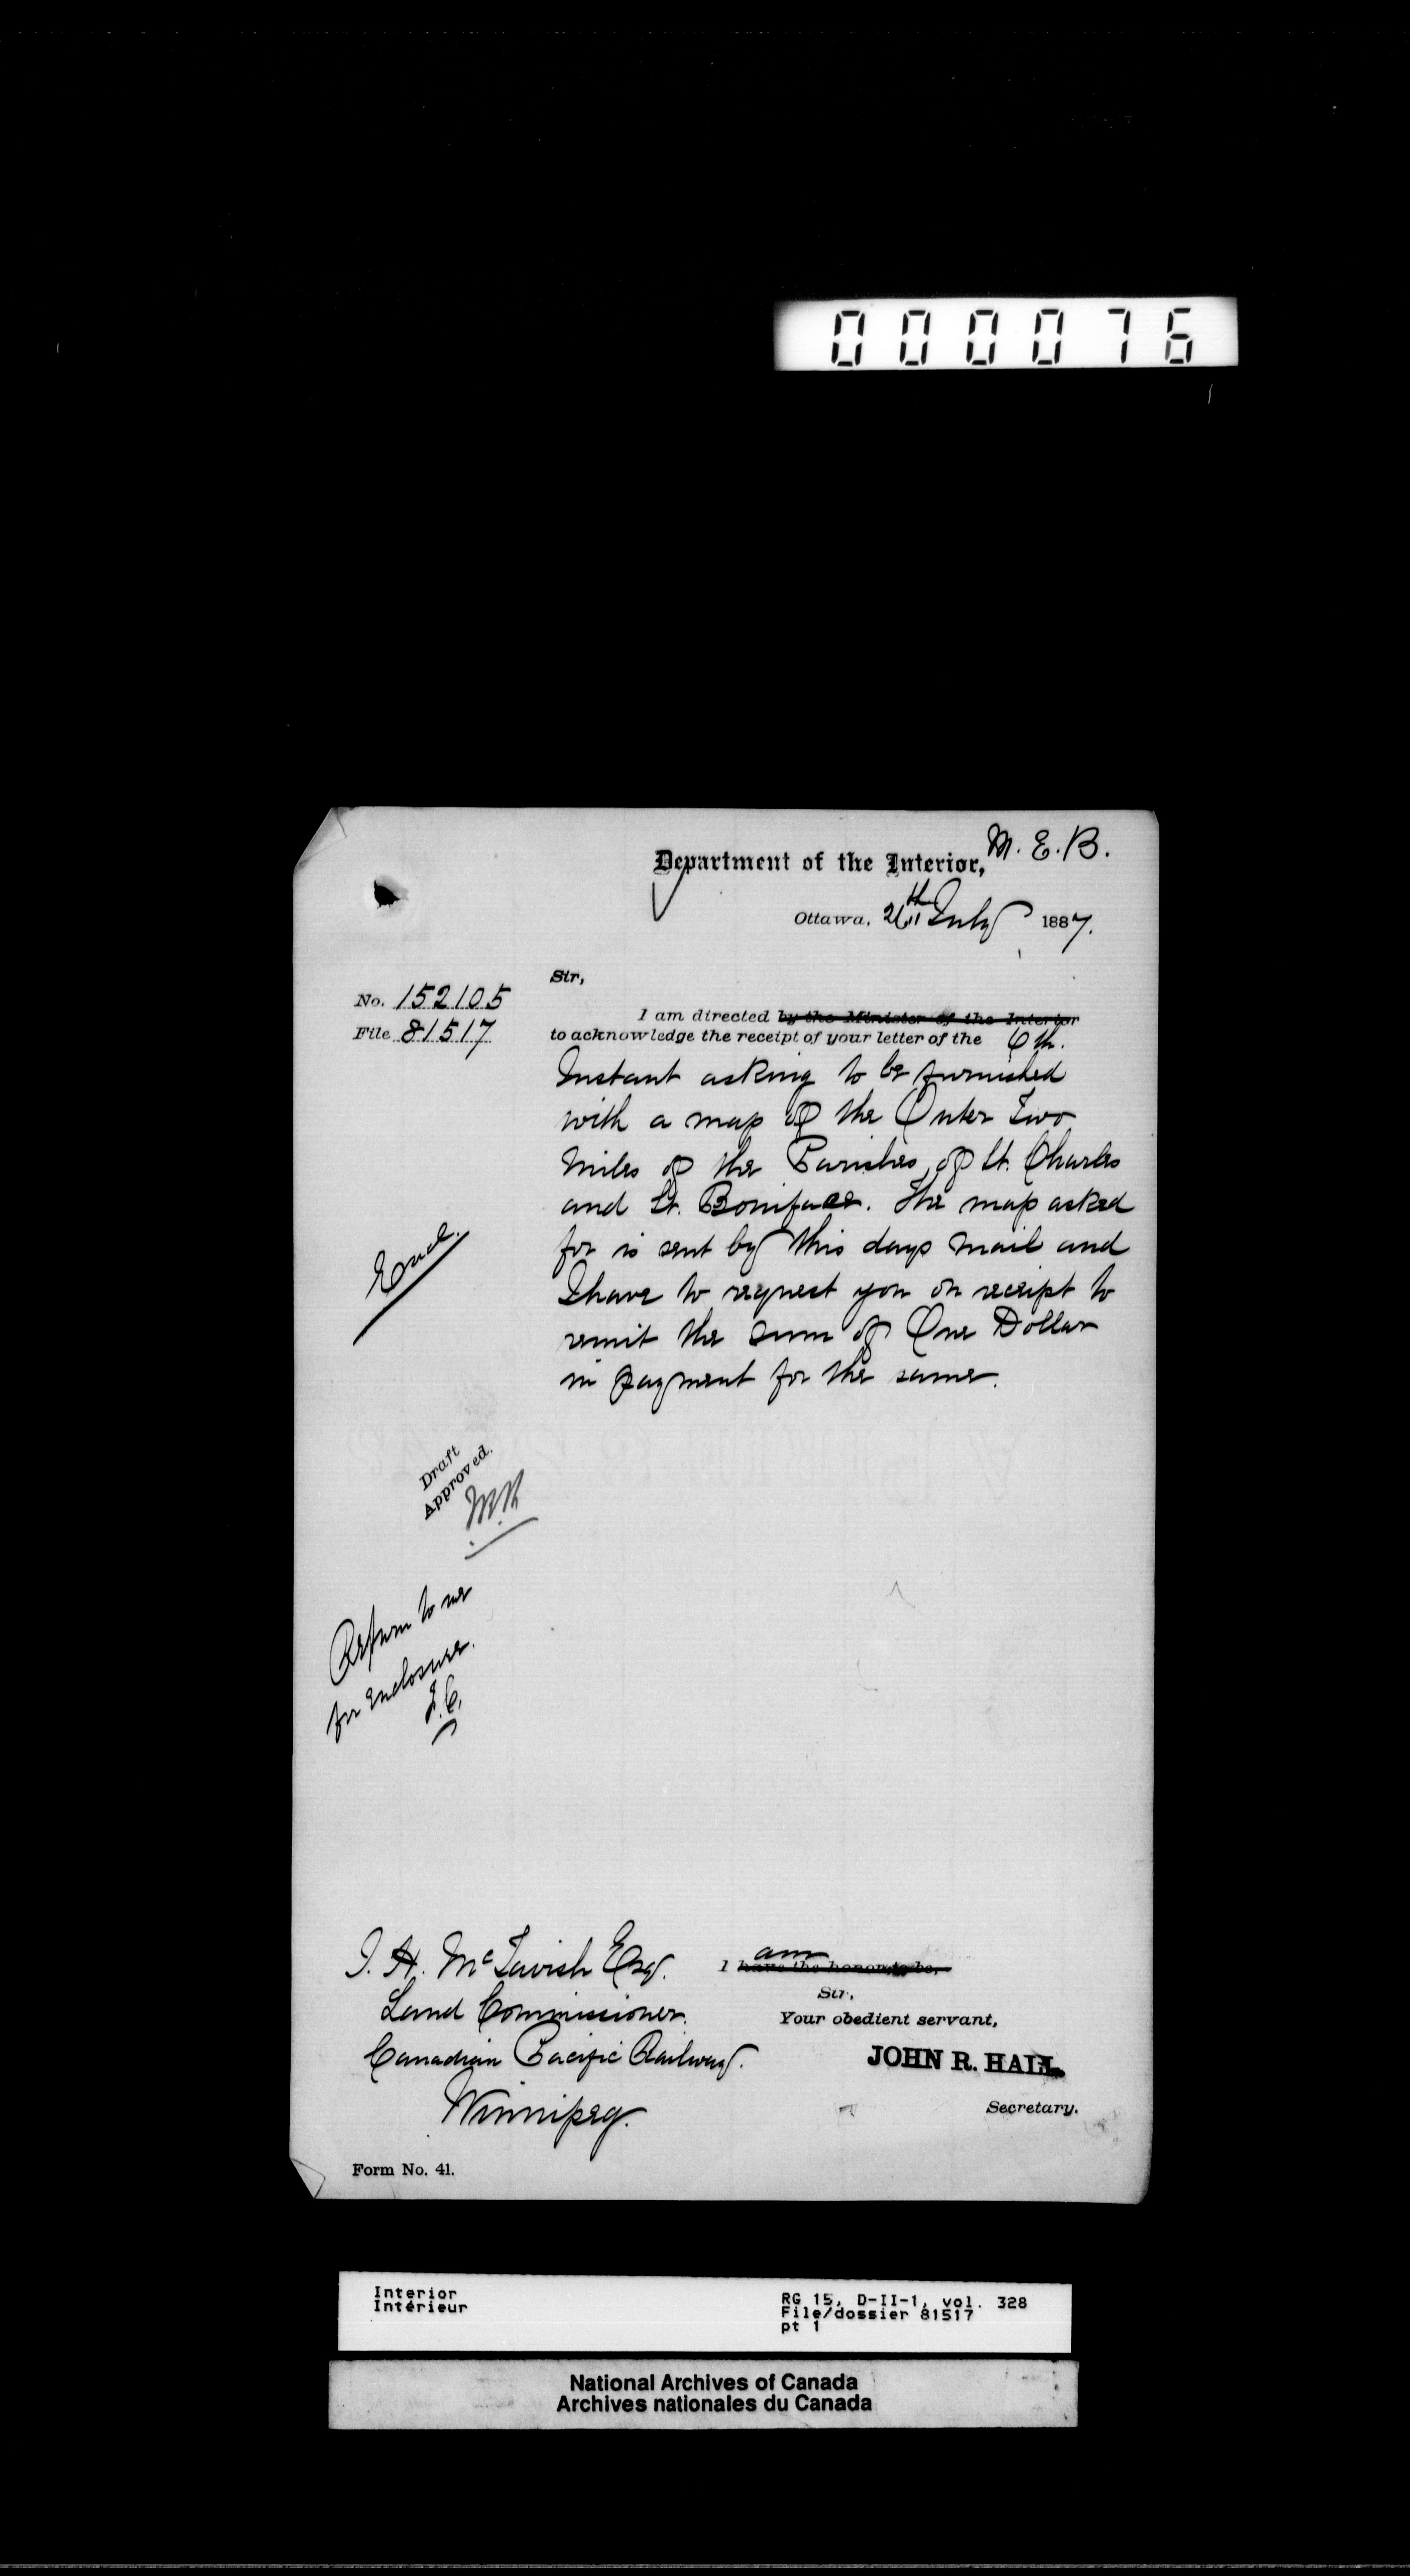 000076
M. E. B.
Department of the Interior,
Ottawa, 26th July 1887.
Sir,
No. 152105
File 81517
I am directed by the Minister of the Interior
to acknowledge the receipt of your letter of the 6th.
Instant asking to be furnished
with a map of the Outer Two
Miles of the Parishes of St. Charles
and St. Boniface. The map asked
for is sent by this days mail and
I have to request you on receipt to
remit the sum of One Dollar
in payment for the same.
Encl.
Draft
Approved.
Return to me
for Enclosure.
J. H. McTavish Esq.
Land Commissioner.
Canadian Pacific Railway.
Winnipeg.
am
I have the honor to be,
Sir,
Your obedient servant,
JOHN R. HALL
Secretary.
Form No. 41.
Interior
Intérieur
RG 15, D-II-1, vol. 328
File/dossier 81517
pt 1
National Archives of Canada
Archives nationales du Canada